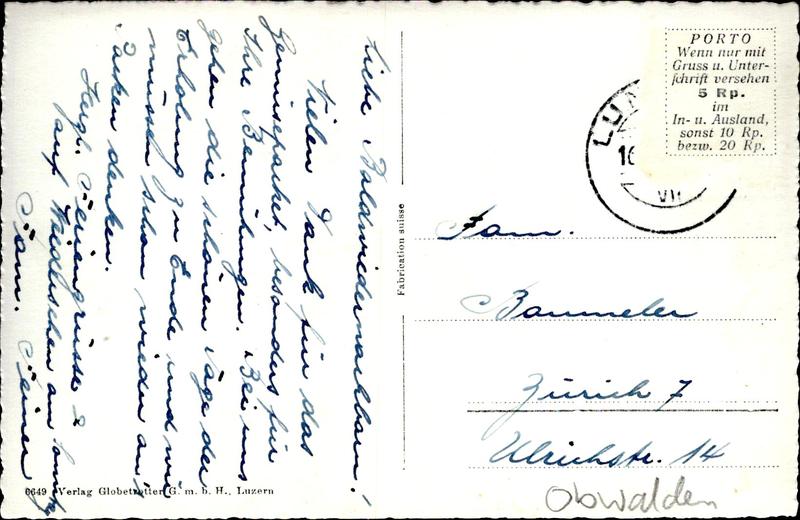 Liebe Baldwiedernachbarn!
Vielen Dank für das
Gemüsepaket, besonders für
Ihre Bemühungen. Bei uns
gehen die schönen Tage der
Erholung zu Ende und wir
müssen schon wieder an's
Packen denken.
Hzgl. Feriengrüsse &
auf Wiedersehen am
Fam.
Fabrication suisse
6649 Verlag Globetrotter G. m. b. H., Luzern
PORTO
Wenn nur mit
Gruss u. Unter-
schrift versehen
5 Rp.
im
In- u. Ausland,
sonst 10 Rp.
bezw. 20 Rp.
16
VII
Fam.
Baumeler
Zürich 7
Ulrichstr. 14
Obwalden